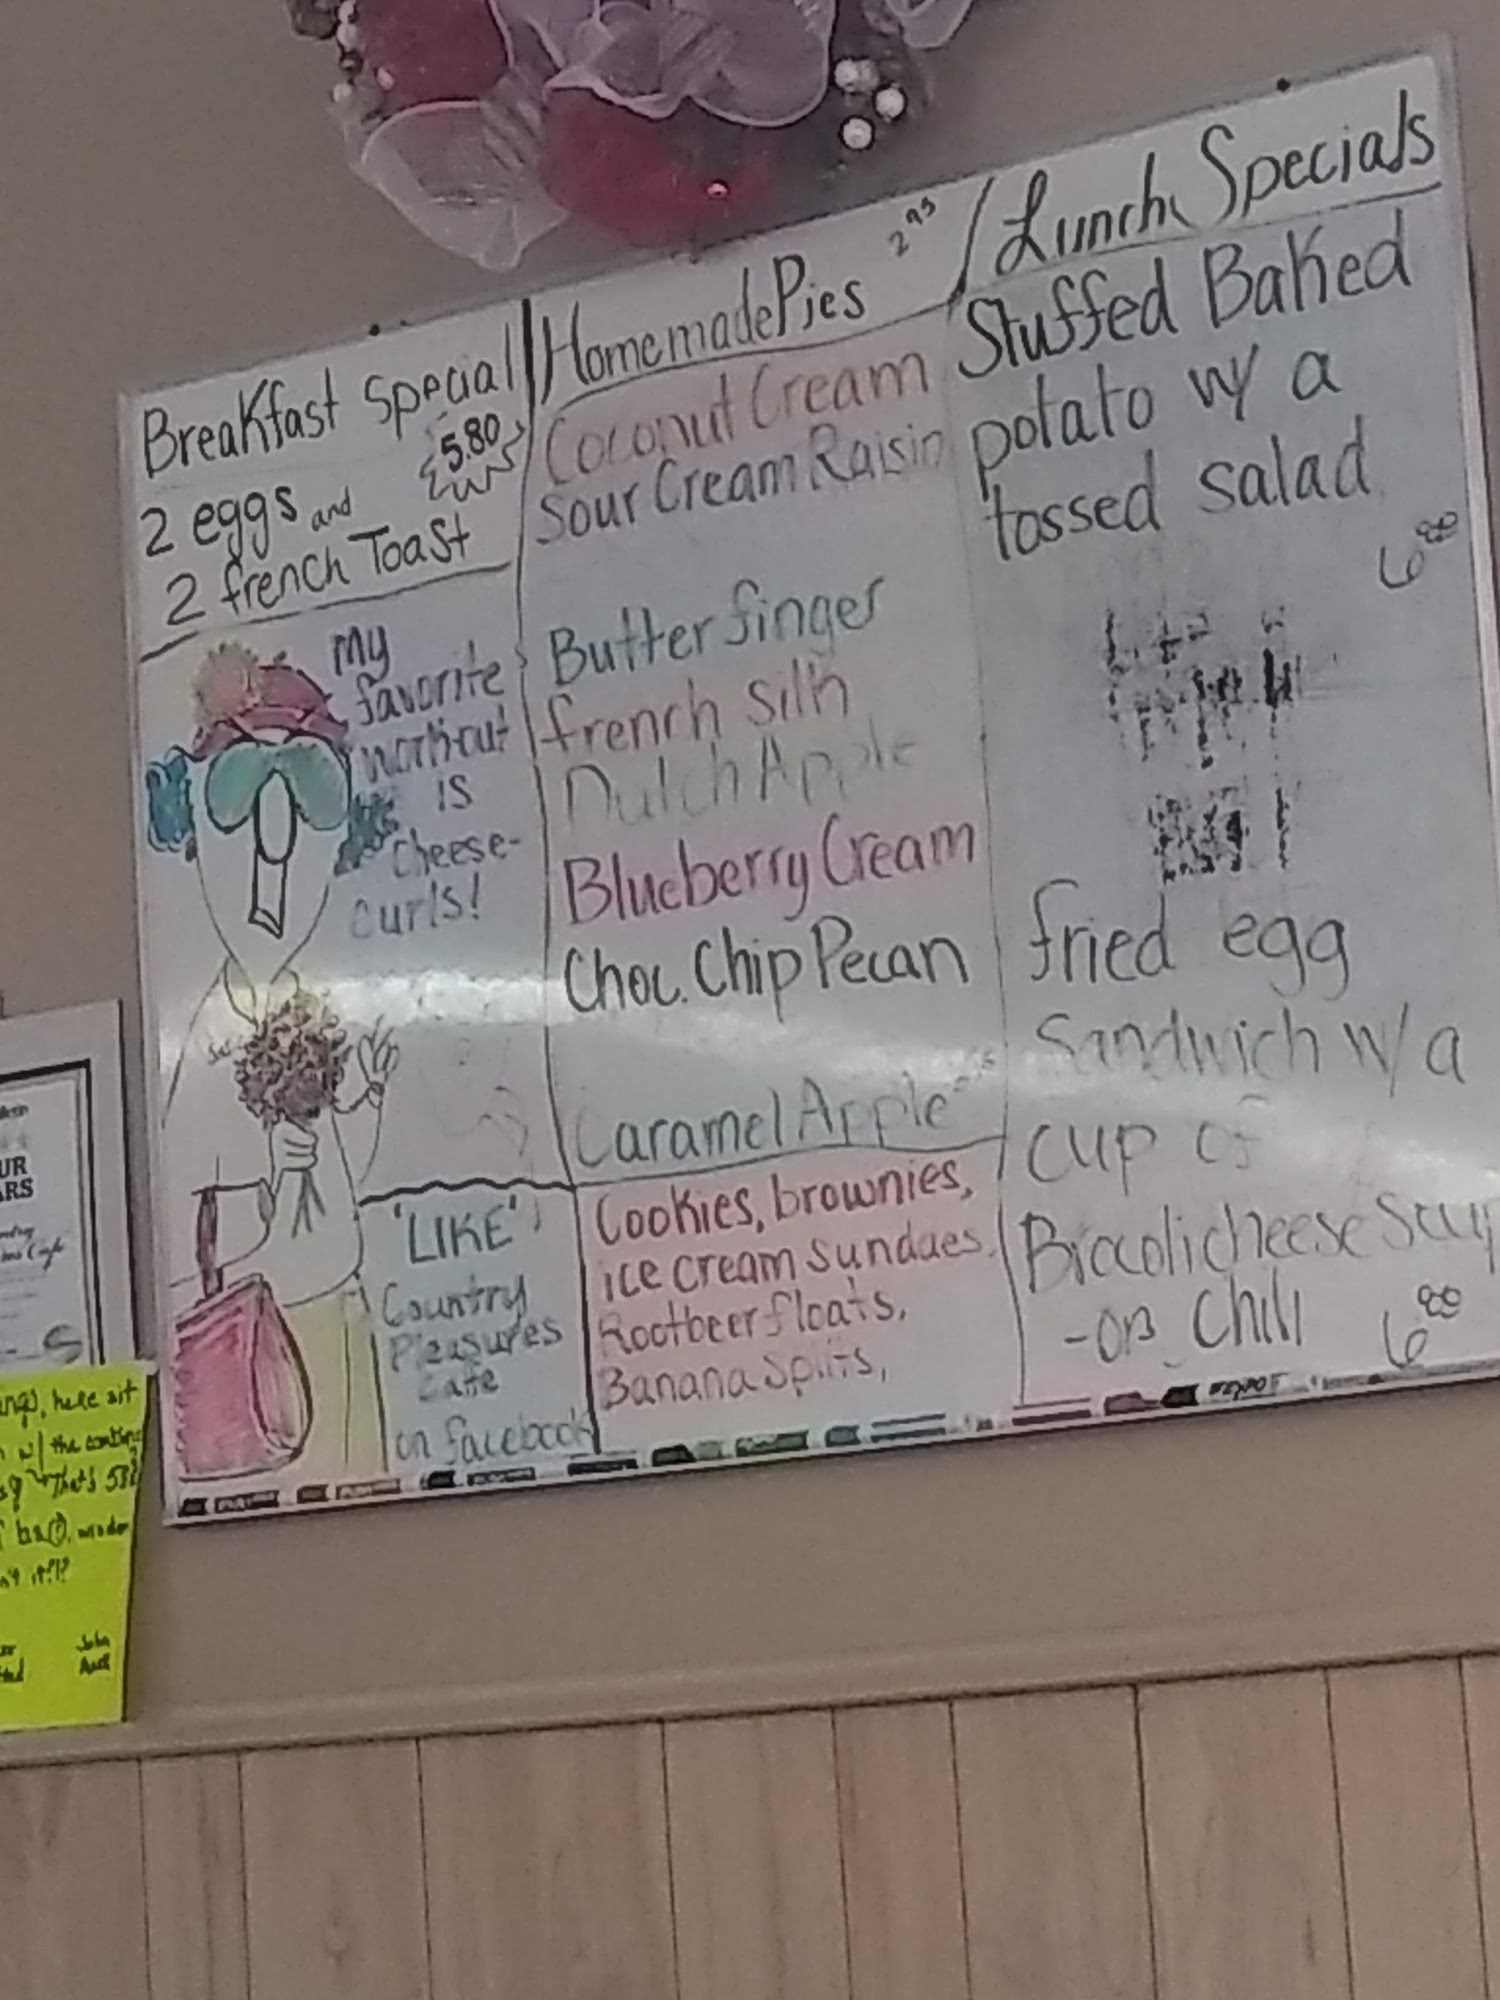 Breakfast Special
5.80
2 eggs and
2 french Toast
My
favorite
workout
is
cheese-
curls!
"LIKE"
Country
Pleasures
Cafe
on facebook
Homemade Pies 2.95
Coconut Cream
Sour Cream Raisin
Butterfinger
french Silk
Dutch Apple
Blueberry Cream
Choc. Chip Pecan
Caramel Apple
Cookies, brownies,
ice cream sundaes,
Rootbeer floats,
Banana Splits,
Lunch Specials
Stuffed Baked
potato w/ a
tossed salad
6.80
fried egg
Sandwich w/ a
cup of
Broccolicheese Soup
-OR Chili
6.80
EXPO
UR
ARS
here sit
w/ the
That's
John